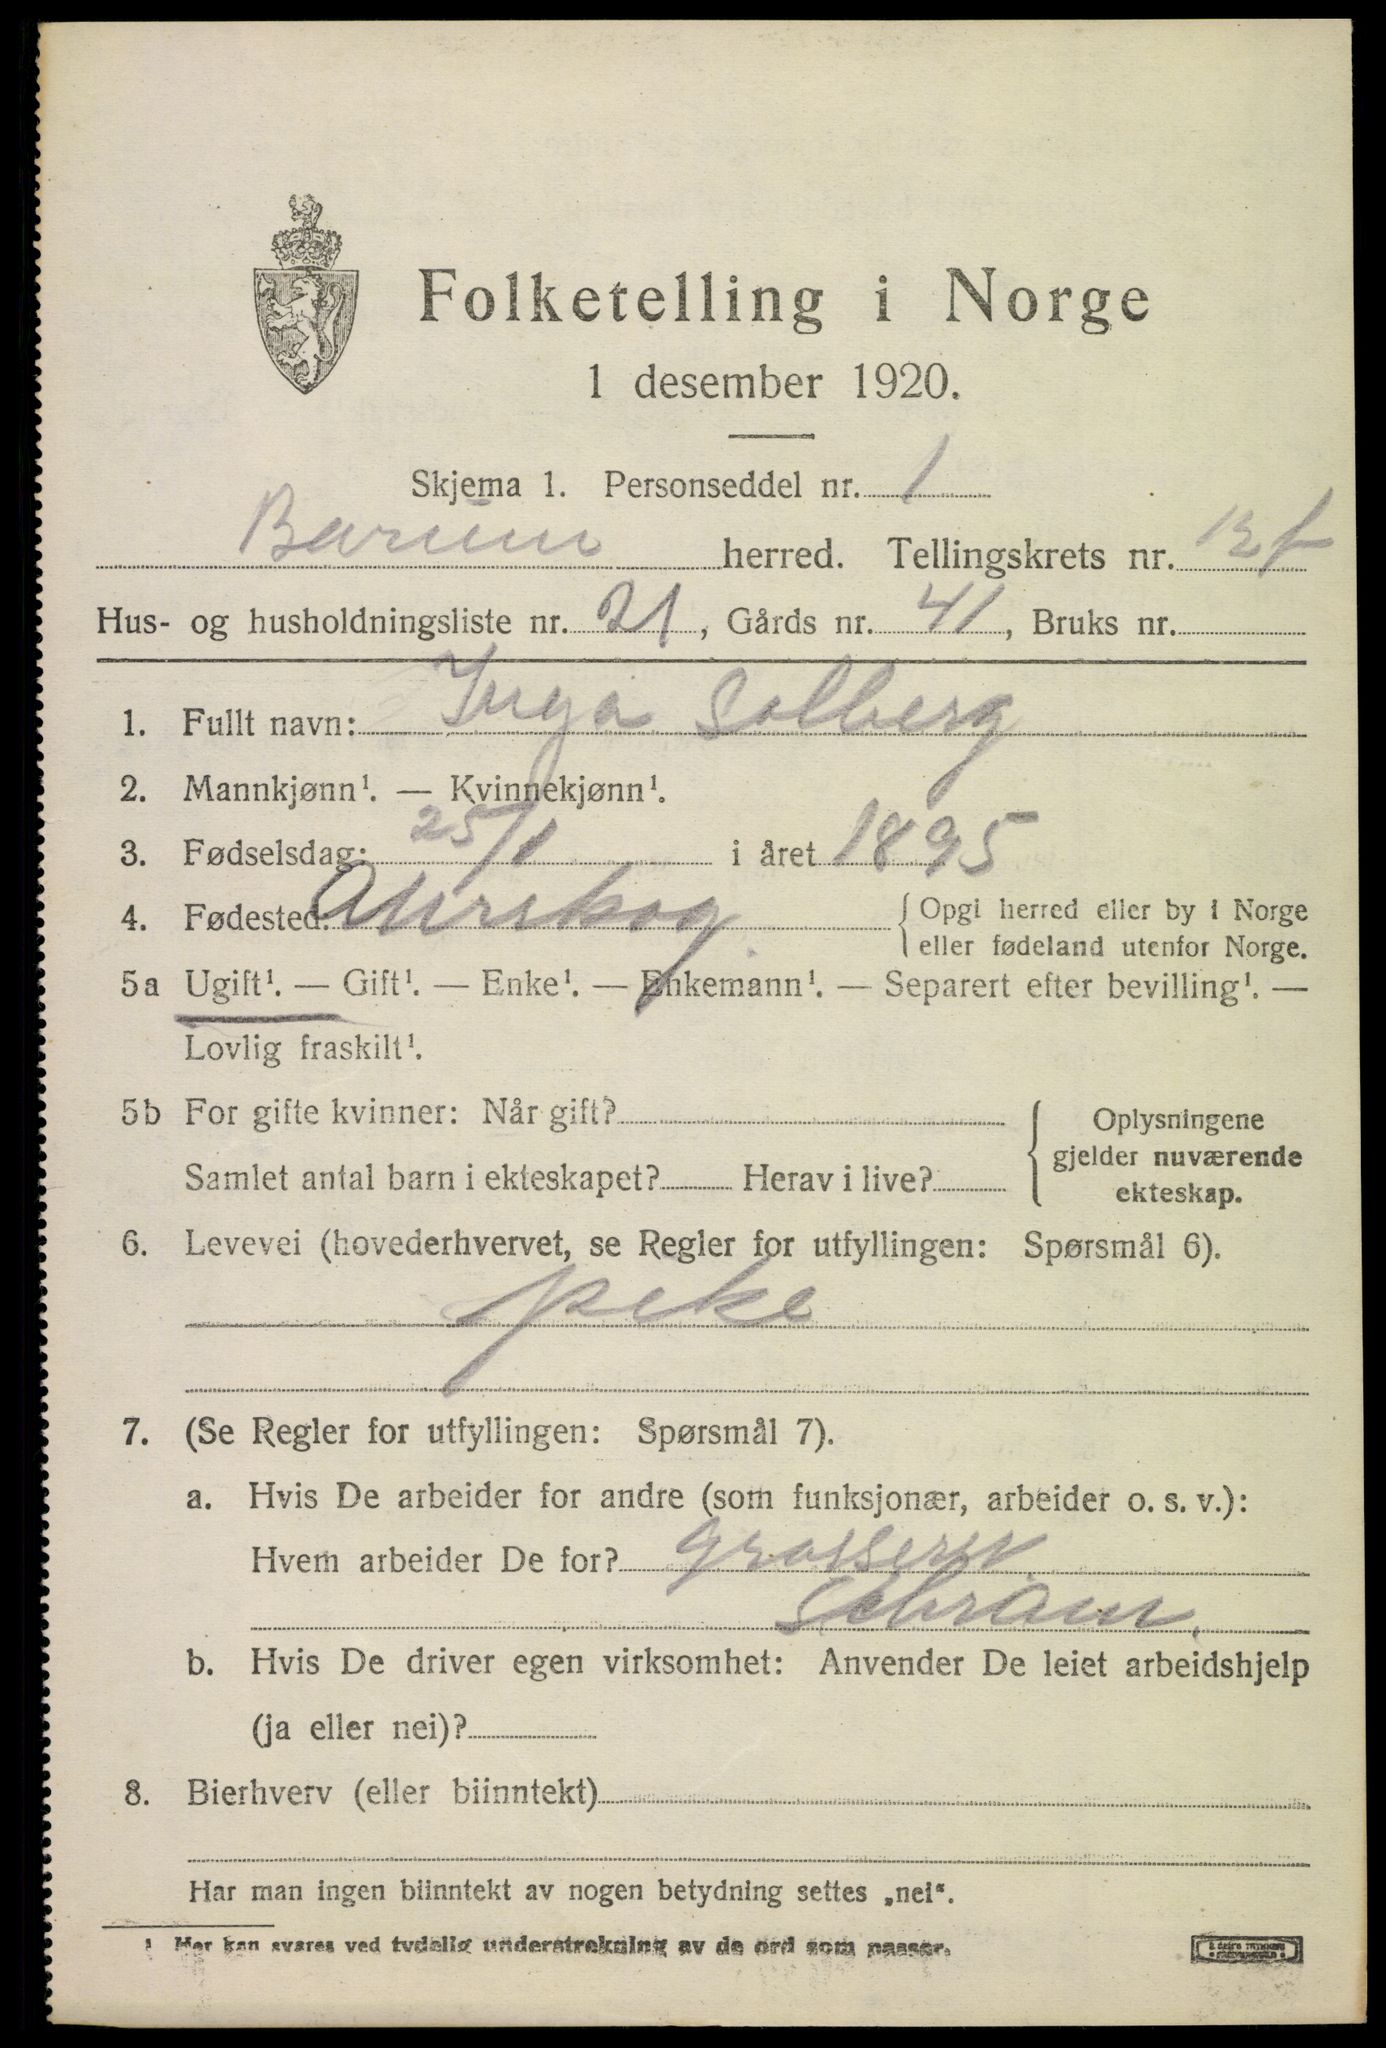 Folketelling i Norge
1 desember 1920.
Skjema 1. Personseddel nr. 1
Bærum herred. Tellingskrets nr. 12 f
Hus- og husholdningsliste nr. 21, Gårds nr. 41, Bruks nr.
1. Fullt navn: Inga Solberg
2. Mannkjønn¹. — Kvinnekjønn¹.
3. Fødselsdag: 25/1 i året 1895
4. Fødested: Aurskog {Opgi herred eller by i Norge
eller fødeland utenfor Norge.
5a Ugift¹. — Gift¹. — Enke¹. — Enkemann¹. — Separert efter bevilling¹. —
Lovlig fraskilt¹.
5b For gifte kvinner: Når gift?
Samlet antal barn i ekteskapet? Herav i live?
Oplysningene
gjelder nuværende
ekteskap.
6. Levevei (hovederhvervet, se Regler for utfyllingen: Spørsmål 6).
peke
7. (Se Regler for utfyllingen: Spørsmål 7).
a. Hvis De arbeider for andre (som funksjonær, arbeider o. s. v.):
Hvem arbeider De for? grosserer
Schram.
b. Hvis De driver egen virksomhet: Anvender De leiet arbeidshjelp
(ja eller nei)?
8. Bierhverv (eller biinntekt)
Har man ingen biinntekt av nogen betydning settes „nei“.
¹ Her kan svares ved tydelig understrekning av de ord som passer.